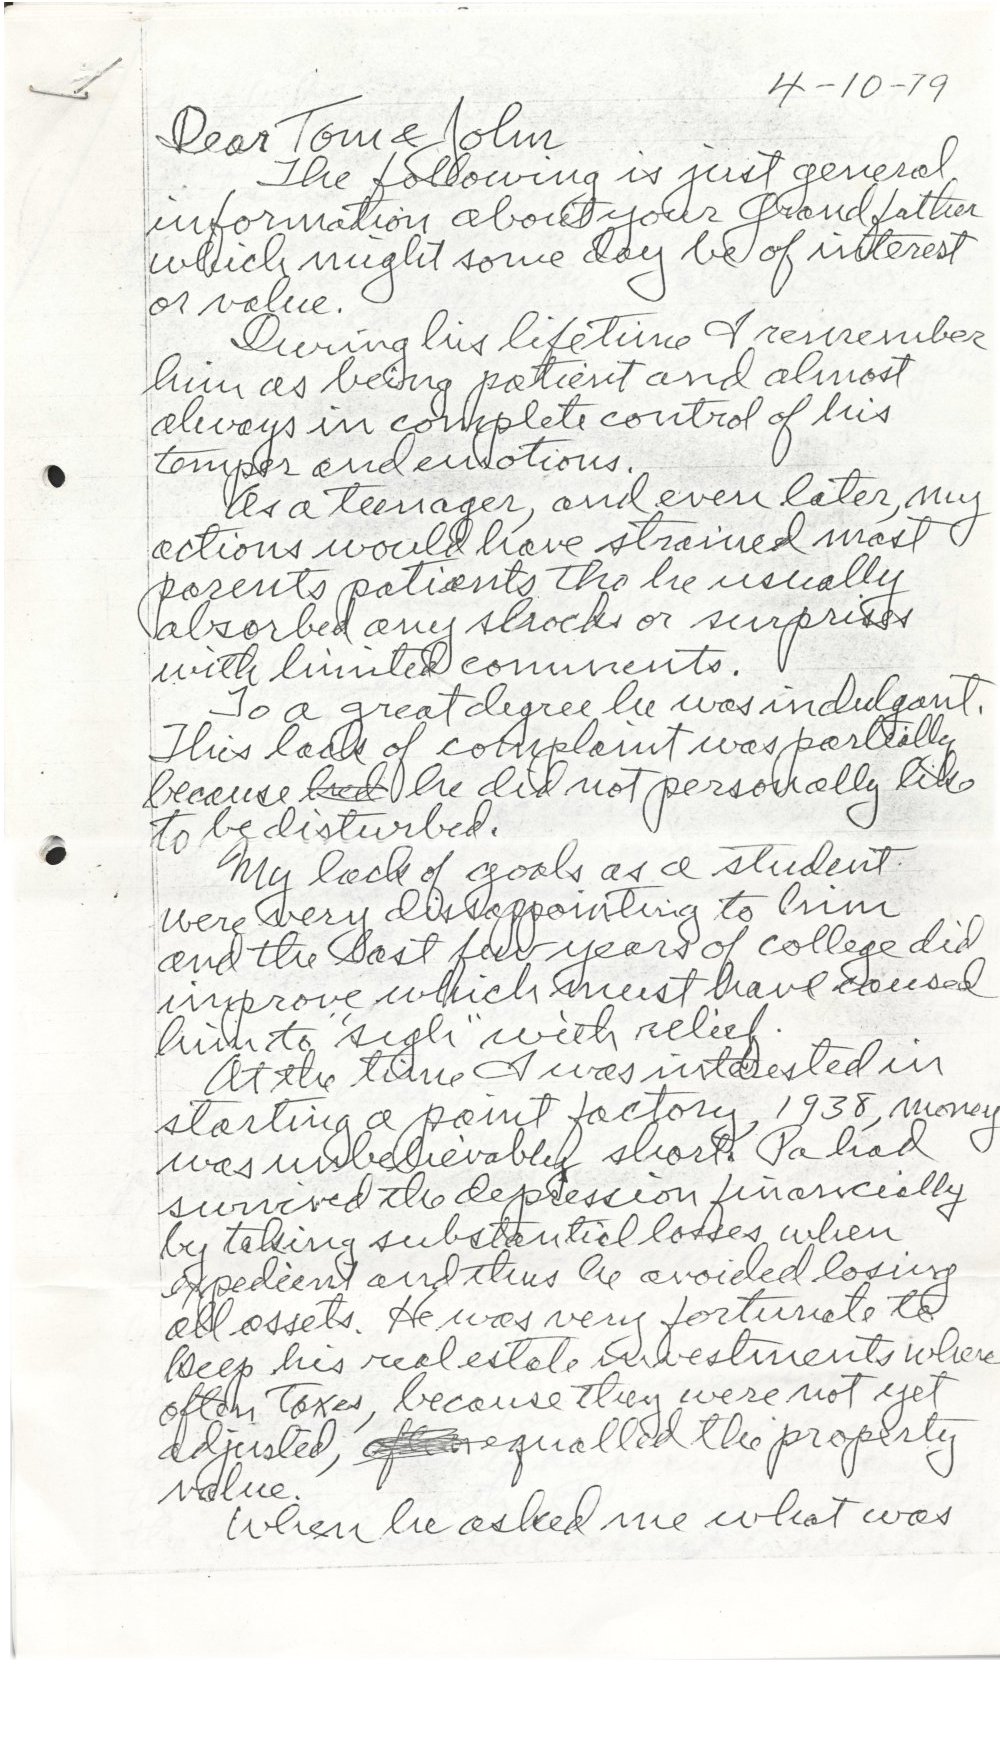 4-10-79
Dear Tom & John
The following is just general
information about your Grandfather
which might some day be of interest
or value.
During his lifetime I remember
him as being patient and almost
always in complete control of his
temper and emotions.
As a teenager, and even later, my
actions would have strained most
parents patients tho he usually
absorbed any shocks or surprises
with limited comments.
To a great degree he was indulgant.
This lack of complaint was partially
because he did not personally like
to be disturbed.
My lack of goals as a student
were very dissappointing to him
and the last few years of college did
improve which must have caused
him to "sigh" with relief.
At the time I was interested in
starting a paint factory, 1938, money
was unbelievably short. Pa had
survived the depression financially
by taking substantial losses when
expedient and thus he avoided losing
all assets. He was very fortunate to
keep his real estate investments where
often taxes, because they were not yet
adjusted, equalled the property
value.
When he asked me what was